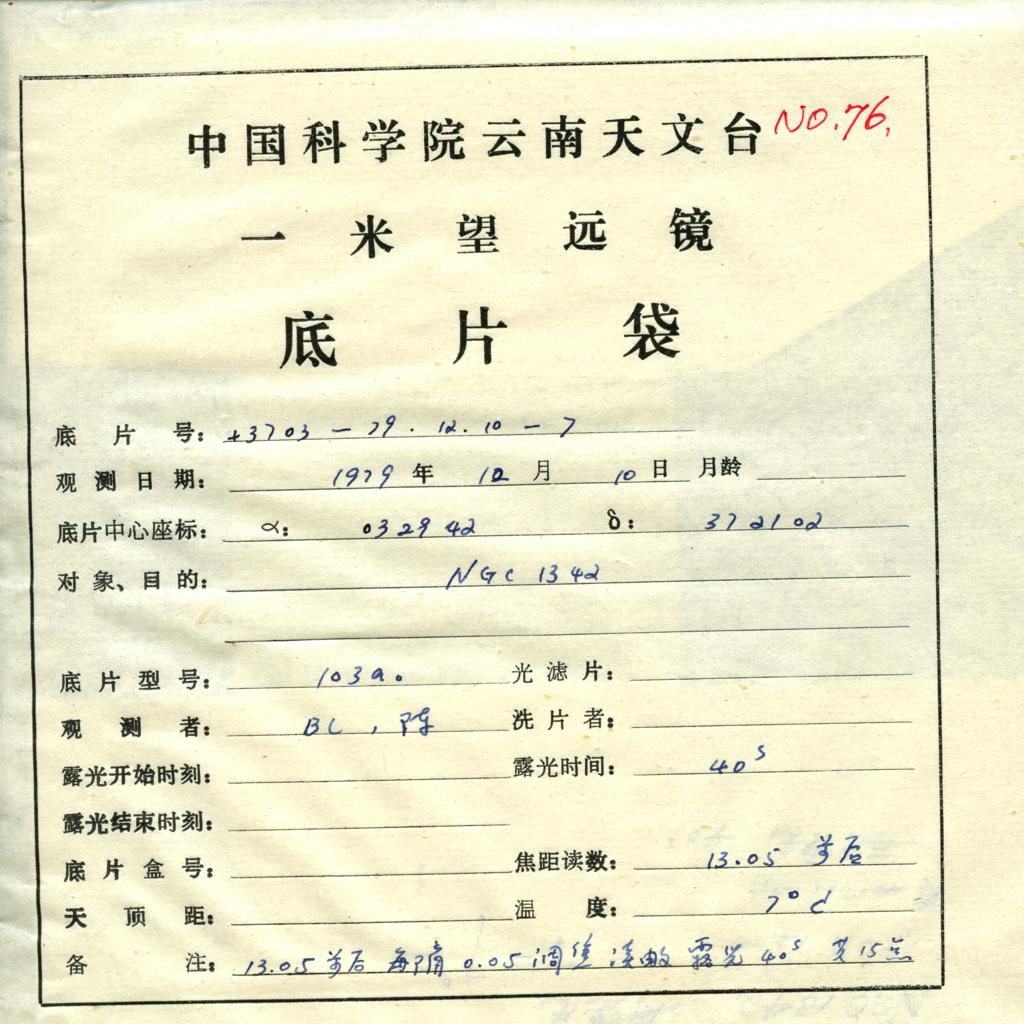 中国科学院云南天文台 NO.76,
一米望远镜
底片袋
底片号: +3703 — 79.12.10 — 7
观测日期: 1979 年 12 月 10 日 月龄
底片中心座标: α: 03 29 42 δ: 37 21 02
对象、目的: NGC 1342
底片型号: 103a。 光滤片:
观测者: BL, 陈 洗片者:
露光开始时刻: 露光时间: 40s
露光结束时刻:
底片盒号: 焦距读数: 13.05 前后
天顶距: 温度: 7°
备注: 13.05 前后 每隔 0.05 调焦 读数 露光 40s 共15点